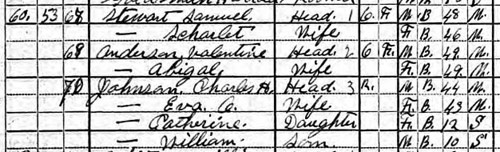 60. 53 68 Stewart Samuel Head 1 O. F. M. B. 48 M.
— Scharlet Wife F. B. 46 M.
69 Anderson, Valentine Head 2 O Fr. M. B. 49 M.
— Abigal Wife Fr. B. 49. M.
70 Johnson, Charles H. Head. 3 R. M B. 44 M.
— Eva C. Wife F. B. 43 M
— Catherine. Daughter F. B. 12 S
— William. Son. M. B. 10 S